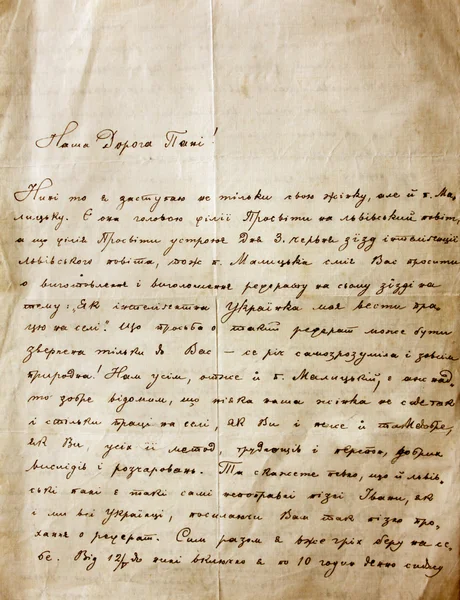 Наша Дорога Пані!
Нині то я заступаю не тільки свою жінку, але й п. Ма-
лицьку. Є она головою філії Просвіти на львівський повіт,
а що філія Просвіти устроює дня 3. червня зїзд інтелігенції
львівського повіта, тож п. Малицька сміє Вас просити
о виготовленє і виголошенє реферату на сьому зїзді на
тему: „Як інтелігентна Українка має вести пра-
цю на селі". Що просьба о такий реферат може бути
звернена тільки до Вас — се річ самозрозуміла і зовсім
природна! Нам усім, отже й п. Малицькій, є аж над-
то добре відомим, що ніяка наша жінка не має так
і стільки праці на селі, як Ви і не знає так добре,
як Ви, усіх її метод, труднощів і перепон, добрих
вислідів і розчаровань. Та скажете певно, що й львів-
ські пані є такі самі непоправні пізні Івани, як
і ми всі Українці, посилаючи Вам так пізно про-
ханє о реферат. Сим разом я вже гріх беру на се-
бе. Від 12/ до нині включно я по 10 годин денно